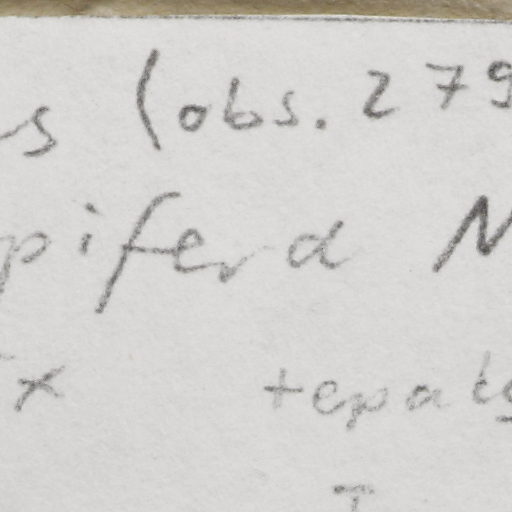 s (obs. 279
pifera N
x tepal